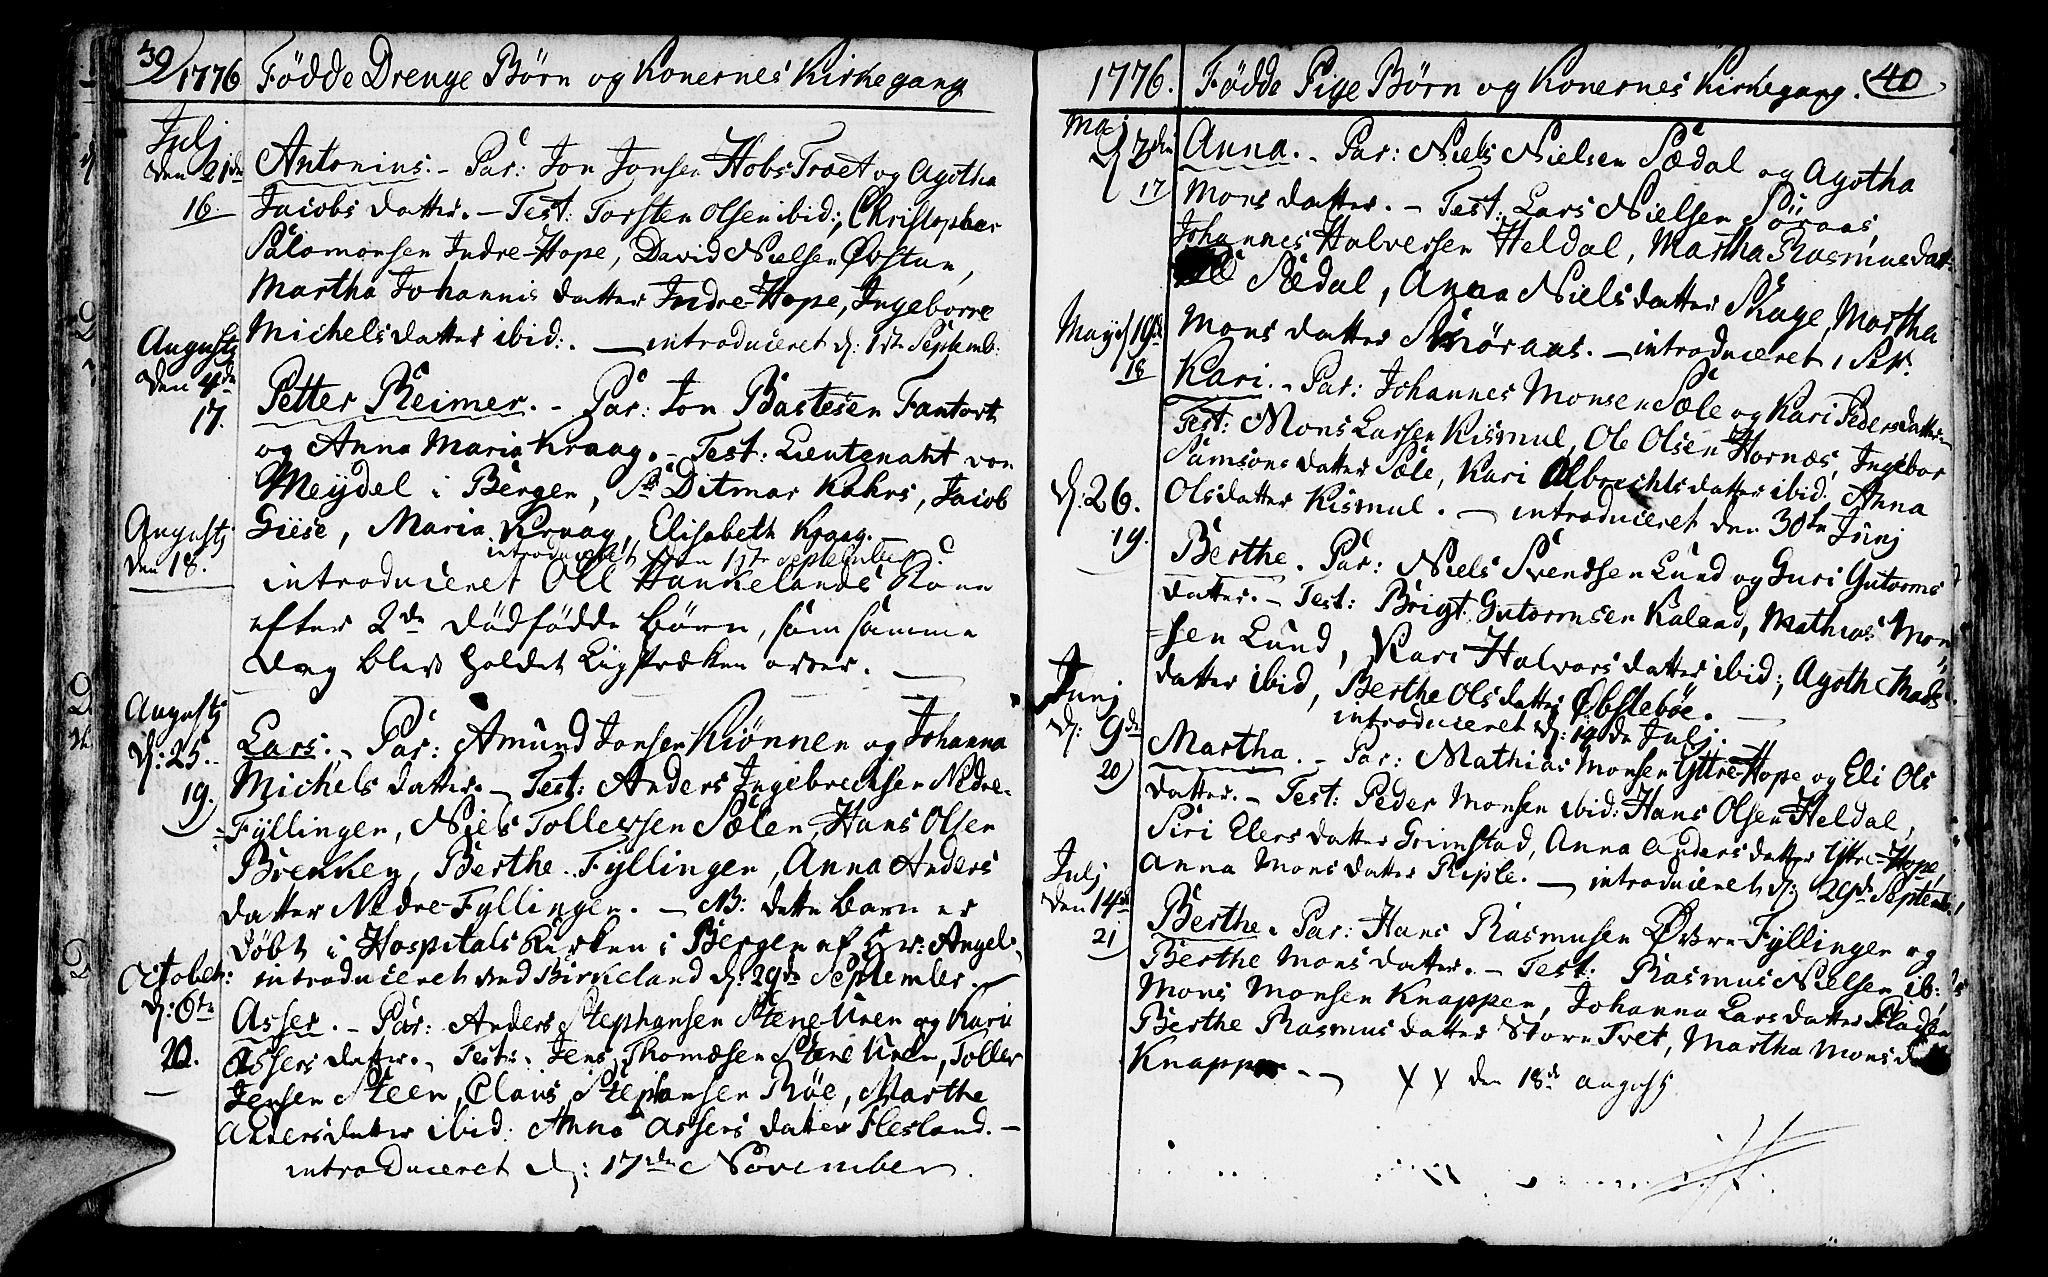 39
1776 Födde Drenge Börn og Konernes Kirkegang
Julj
den 21de
16.
Antonius. - Par: Jon Jonsen HobsTræt og Agotha
Jacobs datter. - Test: Torsten Olsen ibid:, Christopher
Salomonsen Indre-Hope, David Nielsen Øvstun,
Martha Johannis datter Indre-Hope, Ingeborre
Michels datter ibid:. - introduceret d: 1ste Septemb:
Augustj
den 4de
17.
Petter Reimer. - Par: Jon Bastesen Fantoft
og Anna Maria Kraag. - Test: Lieutenant von
Meydel i Bergen, Sr Ditmar Kahrs, Jacob
Giese, Maria Kraag, Elisabeth Kraag. -
introduceret den 1ste September
Augustj
den 18.
introduceret Ole Haukelands Kone
efter 2de dödfödde Börn, som samme
dag blev holdet Ligpræken over. -
Augustj
d: 25.
19.
Lars. - Par: Amund Jonsen Kiönnen og Johanna
Michels datter. - Test: Anders Ingebrechtsen Nedre-
Fyllingen, Niels Tollevsen Sælen, Hans Olsen
Brekken, Berthe Fyllingen, Anna Anders
datter Nedre-Fyllingen. - NB: dette barn er
döbt i Hospitals Kirken i Bergen af Hr: Angel.
introduceret ved Birkeland d: 29de September.
October:
d: 6te
20.
Asser. - Par: Anders Stephansen Steneviren og Kari
Assers datter. - Test: Jens Thomæsen Steneviren, Toller
Jensen Steen, Claus Stephansen Röe, Marthe
Anders datter ibid: Anna Assers datter Flesland. -
introduceret d: 17de November.
1776. Födde Pige Börn og Konernes Kirkegang. 40
Maj
17
Anna. - Par: Niels Nielsen Sædal og Agotha
Mons datter. - Test: Lars Nielsen Söraas,
Johannes Halversen Heldal, Martha Rasmus datt:
Sædal, Anna Niels datter Skage, Martha
Mons datter Smöraas. - introduceret
Maij d 19de
18
Kari. - Par: Johannes Monsen Sæle og Kari Peders datter
Test: Mons Larsen Kismul, Ole Olsen Hornæs, Ingebor
Samsons datter Sæle, Kari Albrechts datter ibid: Anna
Olsdatter Kismul. - introduceret den 30te Junj
d: 26.
19.
Berthe. Par: Niels Svendsen Lund og Guri Gutorms
datter. - Test: Brigt Gutormsen Kaland, Mathias Mon-
sen Lund, Kari Halvors datter ibid:, Agothe Mads
datter ibid, Berthe Ols datter Øvstebøe. -
introduceret d: 14de Julj.
Junj
d: 9de
20
Martha. - Par: Mathias Monsen Yttre-Hope og Eli Ols
datter. - Test: Peder Monsen ibid: Hans Olsen Heldal,
Siri Elers datter Grimstad, Anna Anders datter Yttre-Hope,
Anna Mons datter Riple. - introduceret d: 29de Septemb:
Julj
den 14de
21
Berthe. Par: Hans Rasmusen Øvre-Fyllingen og
Berthe Mons datter. - Test: Rasmus Nielsen ib:,
Mons Monsen Knappen, Johanna Lars datter
Berthe Rasmus datter Store Tvet, Martha Mons
Knappen - den 18de Augustj